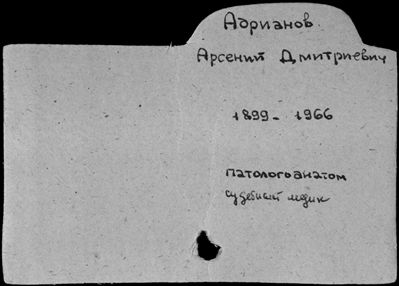 Адрианов
Арсений Дмитриевич
1899 - 1966
патологоанатом
судебный медик